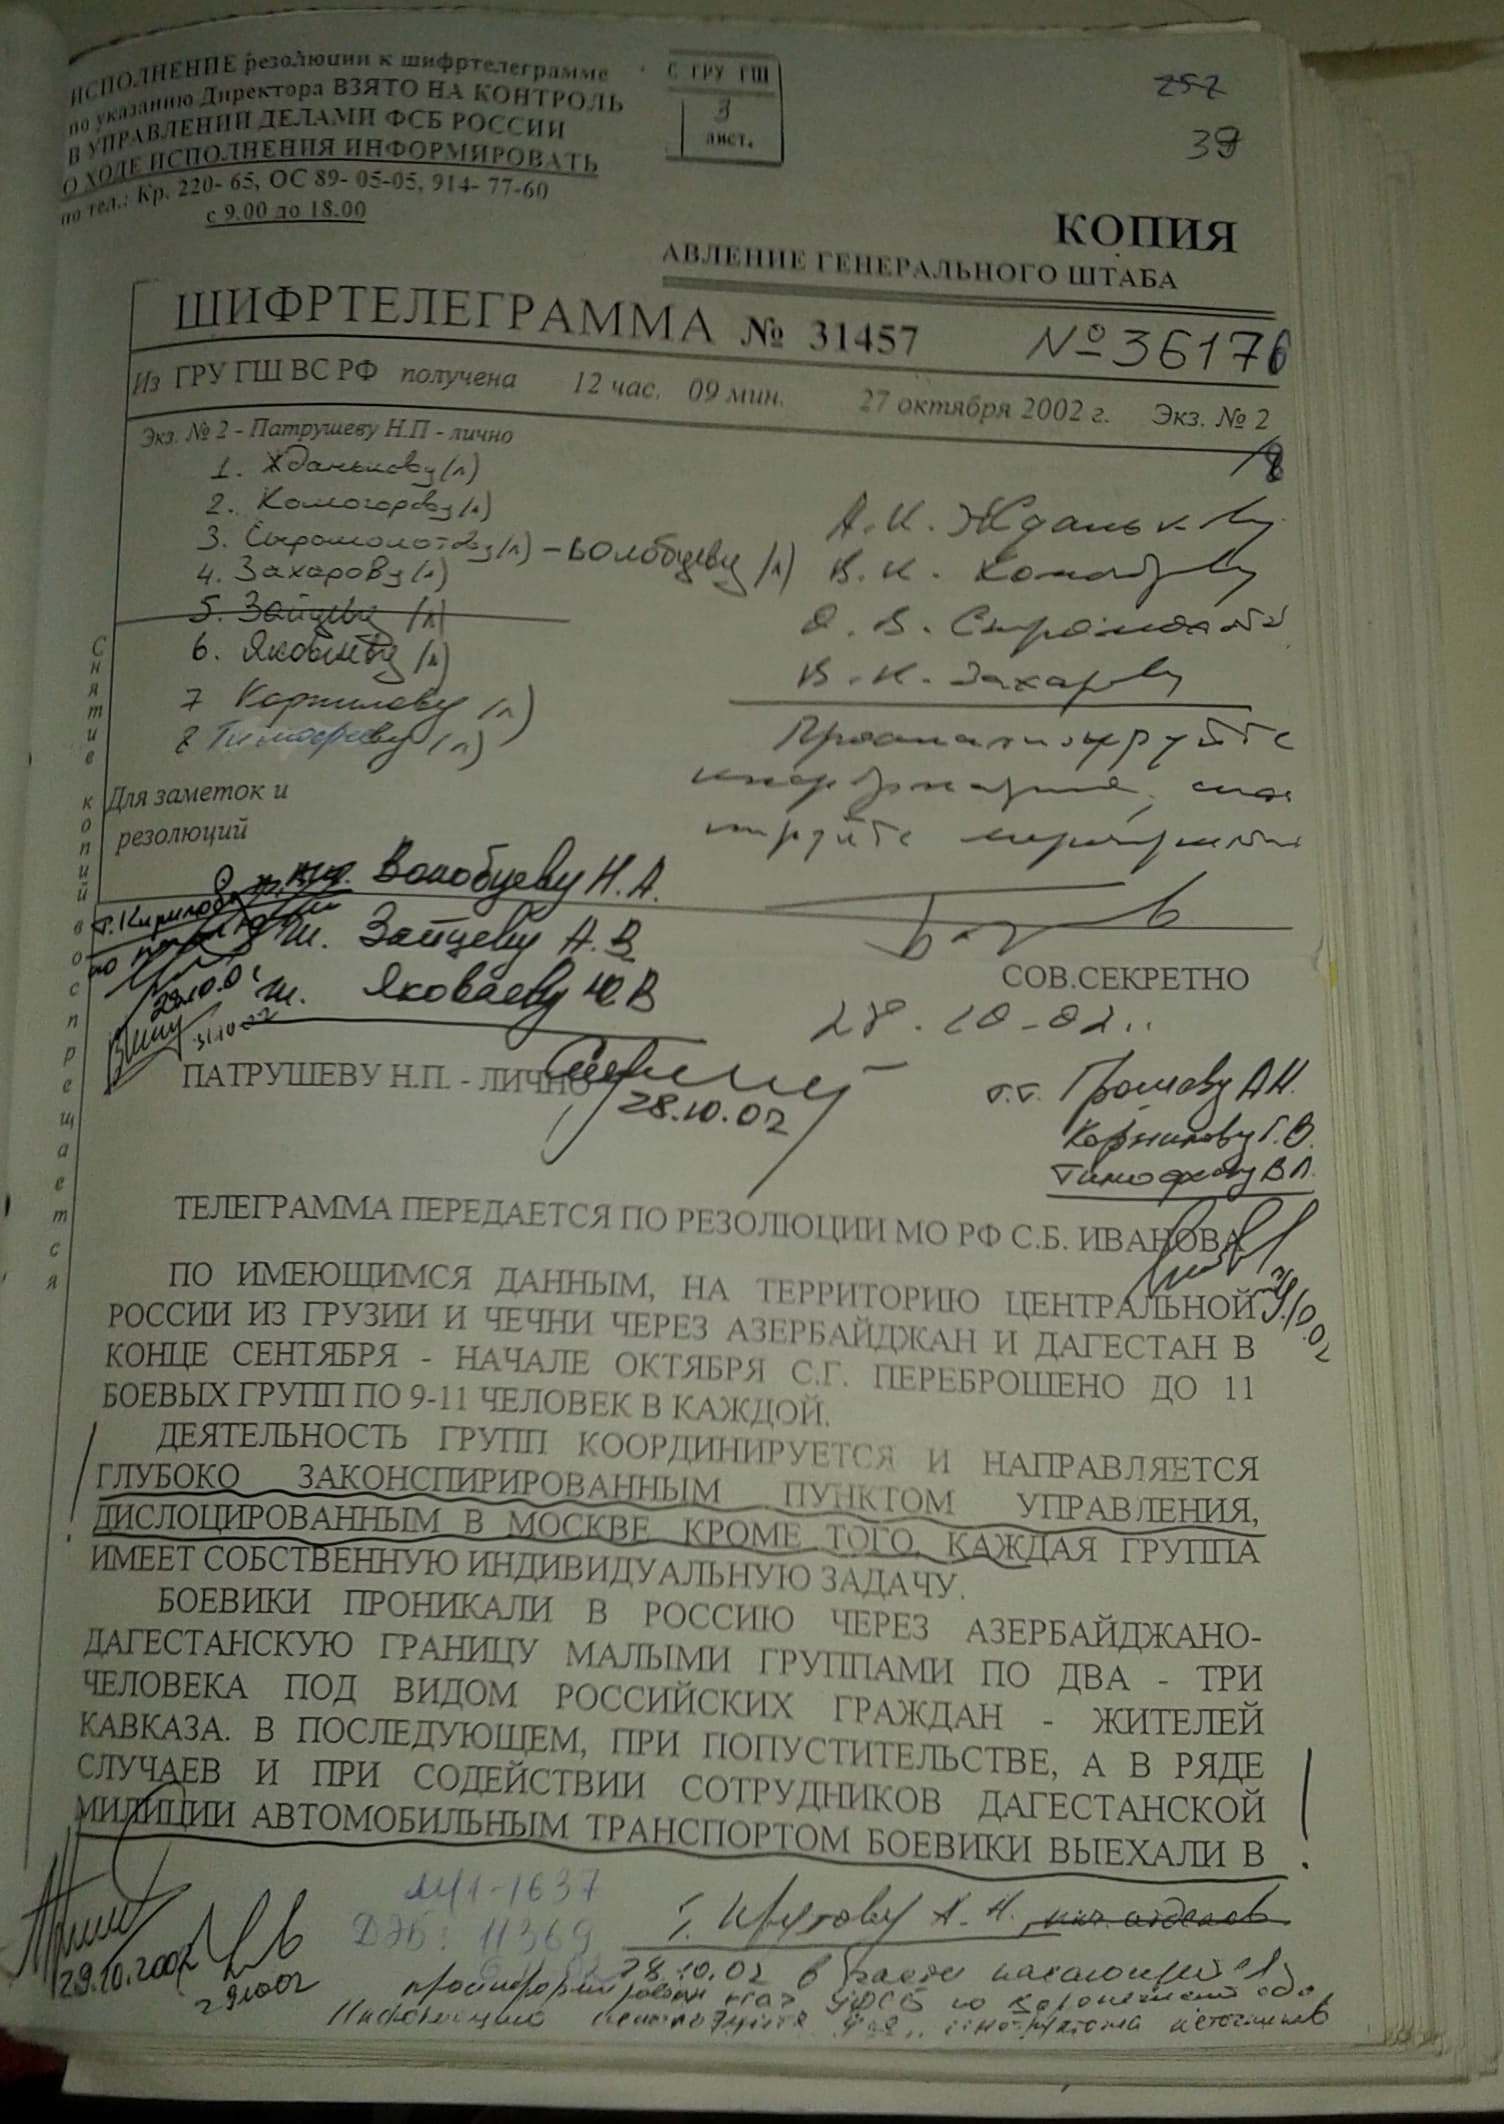 ИСПОЛНЕНИЕ резолюции к шифртелеграмме
по указанию Директора ВЗЯТО НА КОНТРОЛЬ
В УПРАВЛЕНИИ ДЕЛАМИ ФСБ РОССИИ
О ХОДЕ ИСПОЛНЕНИЯ ИНФОРМИРОВАТЬ
по тел.: Кр. 220- 65, ОС 89- 05-05, 914- 77-60
с 9.00 до 18.00
С ГРУ ГШ
3
лист.
257
39
КОПИЯ
АВЛЕНИЕ ГЕНЕРАЛЬНОГО ШТАБА
ШИФРТЕЛЕГРАММА № 31457 №36176
Из ГРУ ГШ ВС РФ получена 12 час. 09 мин. 27 октября 2002 г. Экз. № 2
Экз. № 2 - Патрушеву Н.П - лично
1. Жданькову (л)
2. Комогорову (л)
3. Сыромолотову (л) - Волобуеву (л)
4. Захарову (л)
5. Зайцеву (л)
6. Яковлеву (л)
7 Корнилову (л)
8 Тимофееву (л)
А.К. Жданькову
В.К. Комогорову
О.В. Сыромолотову
В.К. Захарову
Проанализируйте
информацию,
мероприятия
Снятие копий воспрещается
Для заметок и
резолюций
Волобуеву Н.А.
Зайцеву А.В
Яковлеву Ю.В
29.10.02
31.10.02
СОВ.СЕКРЕТНО
28.10.02..
ПАТРУШЕВУ Н.П. - ЛИЧНО
28.10.02
т.т. Громову А.Н.
Корнилову Г.В.
Тимофееву В.Л.
ТЕЛЕГРАММА ПЕРЕДАЕТСЯ ПО РЕЗОЛЮЦИИ МО РФ С.Б. ИВАНОВА
ПО ИМЕЮЩИМСЯ ДАННЫМ, НА ТЕРРИТОРИЮ ЦЕНТРАЛЬНОЙ
РОССИИ ИЗ ГРУЗИИ И ЧЕЧНИ ЧЕРЕЗ АЗЕРБАЙДЖАН И ДАГЕСТАН В
КОНЦЕ СЕНТЯБРЯ - НАЧАЛЕ ОКТЯБРЯ С.Г. ПЕРЕБРОШЕНО ДО 11
БОЕВЫХ ГРУПП ПО 9-11 ЧЕЛОВЕК В КАЖДОЙ.
ДЕЯТЕЛЬНОСТЬ ГРУПП КООРДИНИРУЕТСЯ И НАПРАВЛЯЕТСЯ
ГЛУБОКО ЗАКОНСПИРИРОВАННЫМ ПУНКТОМ УПРАВЛЕНИЯ,
ДИСЛОЦИРОВАННЫМ В МОСКВЕ. КРОМЕ ТОГО, КАЖДАЯ ГРУППА
ИМЕЕТ СОБСТВЕННУЮ ИНДИВИДУАЛЬНУЮ ЗАДАЧУ.
БОЕВИКИ ПРОНИКАЛИ В РОССИЮ ЧЕРЕЗ АЗЕРБАЙДЖАНО-
ДАГЕСТАНСКУЮ ГРАНИЦУ МАЛЫМИ ГРУППАМИ ПО ДВА - ТРИ
ЧЕЛОВЕКА ПОД ВИДОМ РОССИЙСКИХ ГРАЖДАН - ЖИТЕЛЕЙ
КАВКАЗА. В ПОСЛЕДУЮЩЕМ, ПРИ ПОПУСТИТЕЛЬСТВЕ, А В РЯДЕ
СЛУЧАЕВ И ПРИ СОДЕЙСТВИИ СОТРУДНИКОВ ДАГЕСТАНСКОЙ
МИЛИЦИИ АВТОМОБИЛЬНЫМ ТРАНСПОРТОМ БОЕВИКИ ВЫЕХАЛИ В
1-1637
11369
29.10.2002
291002
А.Н. нач. отделов
28.10.02 в части касающейся